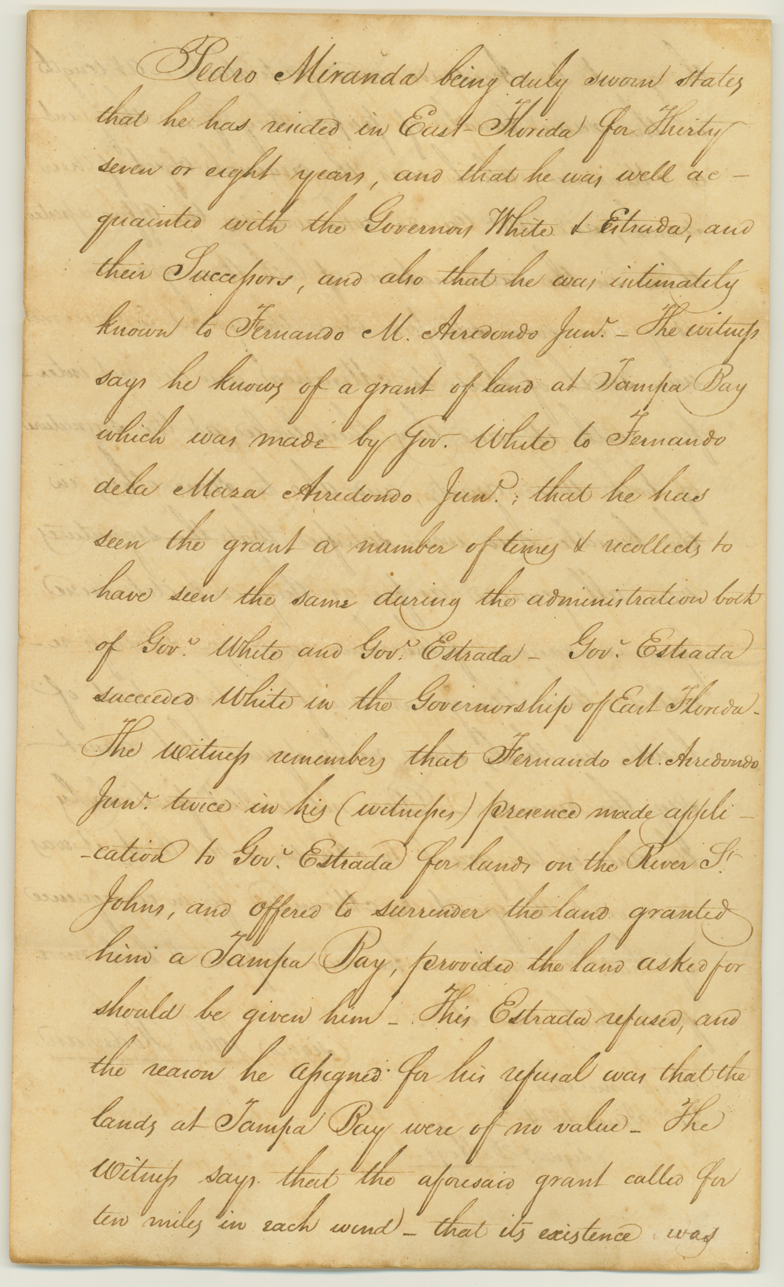 Pedro Miranda being duly sworn states
that he has resided in East-Florida for Thirty
seven or eight years, and that he was well ac-
quainted with the Governors White & Estrada, and
their Successors, and also that he was intimately
known to Fernando M. Arredondo Junr. - The witness
says he knows of a grant of land at Tampa Bay
which was made by Gov. White to Fernando
dela Maza Arredondo Junr.; that he has
seen the grant a number of times & recollects to
have seen the same during the administration both
of Govr. White and Govr. Estrada - Govr. Estrada
succeeded White in the Governorship of East Florida -
The witness remembers that Fernando M. Arredondo
Junr. twice in his (witnesses) presence made appli-
-cation to Govr. Estrada for lands on the River St.
Johns, and offered to surrender the land granted
him a Tampa Bay, provided the land asked for
should be given him - This Estrada refused, and
the reason he assigned for his refusal was that the
lands at Tampa Bay were of no value - The
Witness says that the aforesaid grant called for
ten miles in each wind - that its existence was